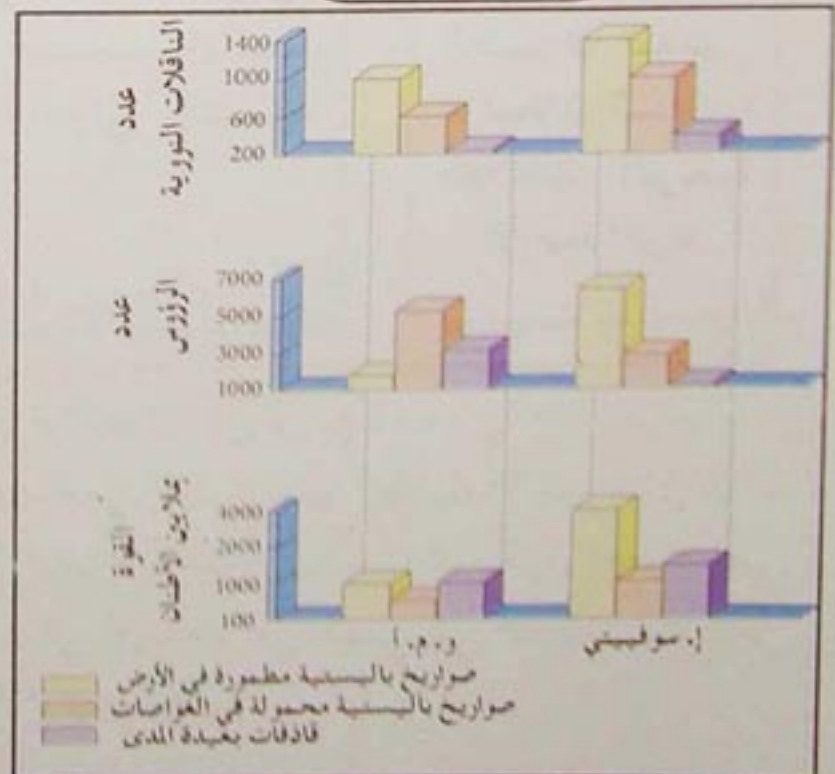 عدد
الناقلات النووية
1400
1000
600
200
عدد
الرؤوس
7000
5000
3000
1000
القوة
بملايين الأطنان
4000
2000
1000
100
و.م.أ
إ. سوفييتي
صواريخ باليستية مطمورة في الأرض
صواريخ باليستية محمولة في الغواصات
قاذفات بعيدة المدى